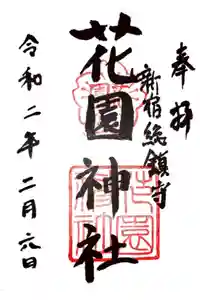 奉拝
新宿総鎮守
花園神社
令和二年二月六日